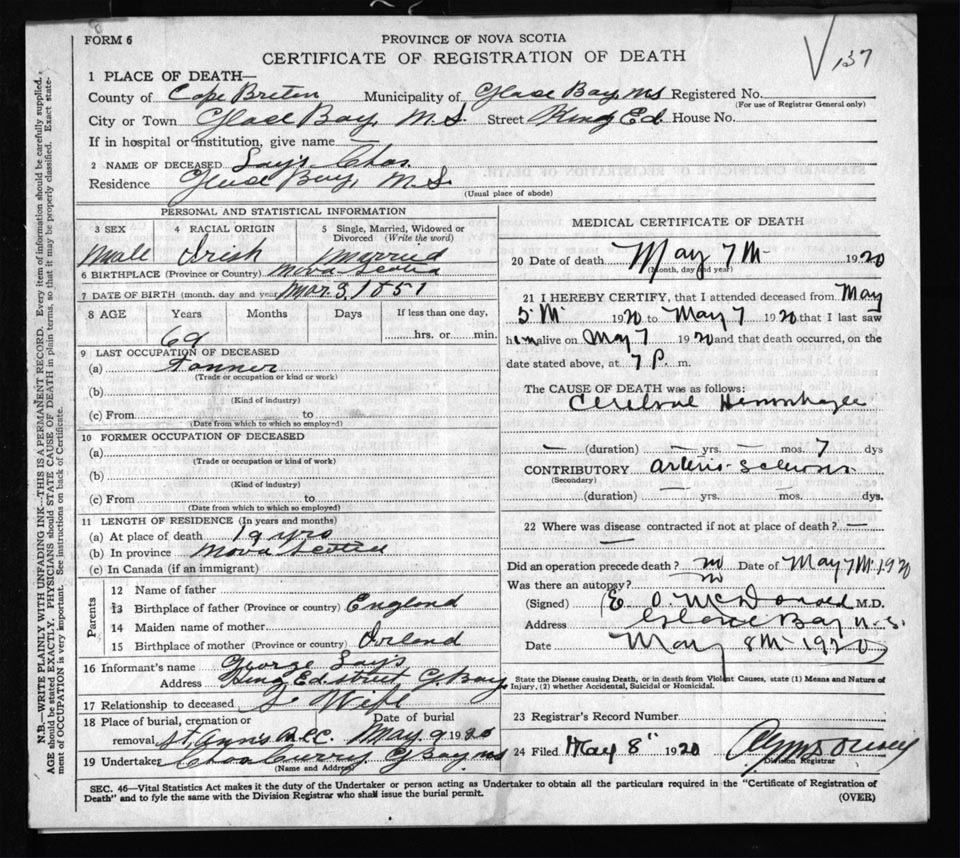 FORM 6
PROVINCE OF NOVA SCOTIA
CERTIFICATE OF REGISTRATION OF DEATH
137
1 PLACE OF DEATH—
County of Cape Breton Municipality of Glace Bay, N.S Registered No.
(For use of Registrar General only)
City or Town Glace Bay, N.S. Street King Ed. House No.
If in hospital or institution, give name
2 NAME OF DECEASED Says Chas.
Residence Glace Bay, N.S.
(Usual place of abode)
PERSONAL AND STATISTICAL INFORMATION
3 SEX 4 RACIAL ORIGIN 5 Single, Married, Widowed or Divorced (Write the word)
Male Irish Married
6 BIRTHPLACE (Province or Country) Nova Scotia
7 DATE OF BIRTH (month, day and year) Mar. 3, 1851
8 AGE Years Months Days If less than one day,
69 hrs. or min.
9 LAST OCCUPATION OF DECEASED
(a)
(Trade or occupation or kind or work)
(b)
(Kind of industry)
(c) From to
(Date from which to which so employed)
10 FORMER OCCUPATION OF DECEASED
(a)
(Trade or occupation or kind of work)
(b)
(Kind of industry)
(c) From to
(Date from which to which so employed)
11 LENGTH OF RESIDENCE (In years and months)
(a) At place of death 19 yrs
(b) In province Nova Scotia
(c) In Canada (if an immigrant)
Parents
12 Name of father
13 Birthplace of father (Province or country) England
14 Maiden name of mother
15 Birthplace of mother (Province or country) Irland
16 Informant's name George Says
Address King Ed. street G. Bay
17 Relationship to deceased Wife
18 Place of burial, cremation or Date of burial
removal St. Ann's May. 9 1920
19 Undertaker Curry G Bay NS
(Name and Address)
MEDICAL CERTIFICATE OF DEATH
20 Date of death May 7th 1920
(Month, day and year)
21 I HEREBY CERTIFY, that I attended deceased from May
5th 1920 to May 7 1920 that I last saw
him alive on May 7 1920 and that death occurred, on the
date stated above, at 7 P. m.
The CAUSE OF DEATH was as follows:
Cerebral Hemorrhage
— (duration) — yrs. — mos. 7 dys
CONTRIBUTORY arterio-sclerosis
(Secondary)
(duration) — yrs. — mos. dys.
22 Where was disease contracted if not at place of death? —
—
Did an operation precede death? no Date of May 7th 1920
Was there an autopsy? no
(Signed) E. O. McDonald M.D.
Address Glace Bay N.S.
Date May 8th 1920
State the Disease causing Death, or in death from Violent Causes, state (1) Means and Nature of
Injury, (2) whether Accidental, Suicidal or Homicidal.
23 Registrar's Record Number
24 Filed May 8" 1920
Division Registrar
SEC. 46—Vital Statistics Act makes it the duty of the Undertaker or person acting as Undertaker to obtain all the particulars required in the "Certificate of Registration of
Death" and to fyle the same with the Division Registrar who shall issue the burial permit.
(OVER)
N.B.—WRITE PLAINLY WITH UNFADING INK—THIS IS A PERMANENT RECORD. Every item of information should be carefully supplied.
AGE should be stated EXACTLY. PHYSICIANS should STATE CAUSE OF DEATH in plain terms, so that it may be properly classified. Exact statement
of OCCUPATION is very important. See instructions on back of Certificate.